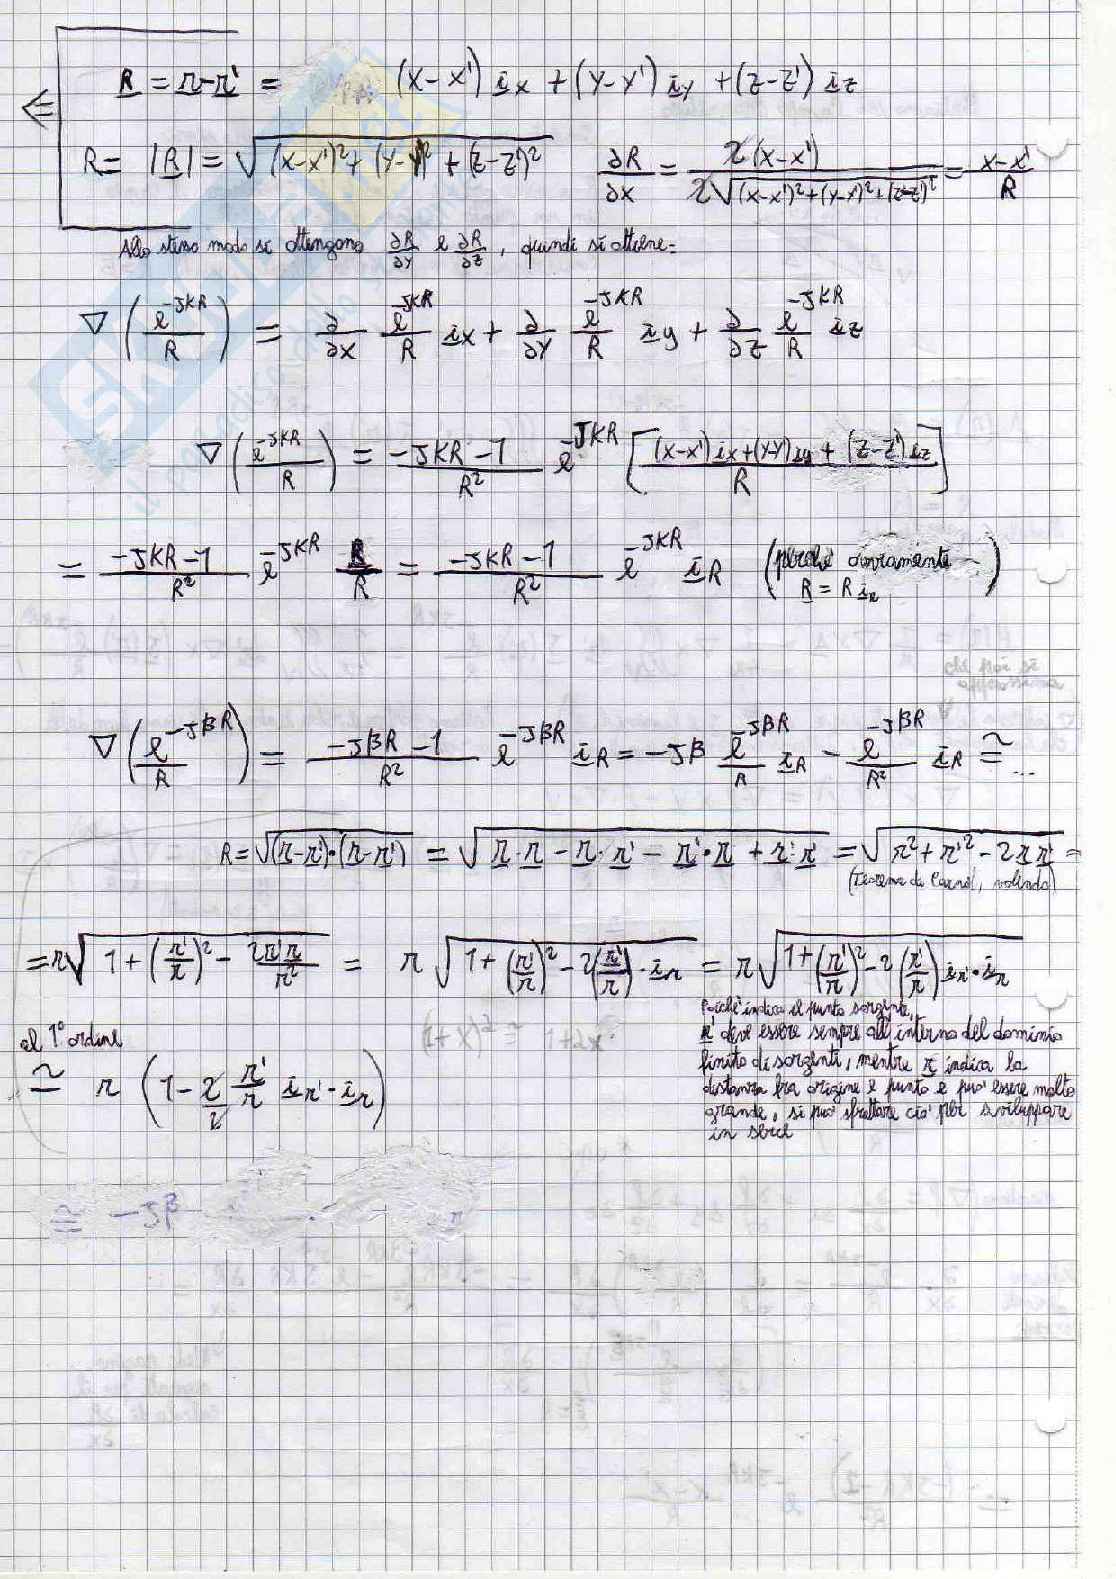 R = r-r' = (x-x') ix + (y-y') iy + (z-z') iz
R = |R| = √((x-x')²+(y-y')²+(z-z')²)   ∂R/∂x = 2(x-x') / 2√((x-x')²+(y-y')²+(z-z')²) = x-x' / R
Allo stesso modo si ottengono ∂R/∂y e ∂R/∂z, quindi si ottiene:
∇(e^-JKR / R) = ∂/∂x e^-JKR / R ix + ∂/∂y e^-JKR / R iy + ∂/∂z e^-JKR / R iz
∇(e^-JKR / R) = -JKR-1 / R² e^-JKR [(x-x')ix+(y-y')iy+(z-z')iz / R]
= -JKR-1 / R² e^-JKR R / R = -JKR-1 / R² e^-JKR iR (perché ovviamente
R = R iR)
∇(e^-JβR / R) = -JβR-1 / R² e^-JβR iR = -Jβ e^-JβR / R iR - e^-JβR / R² iR ≅ ...
R = √((r-r')·(r-r')) = √(r·r - r·r' - r'·r + r'·r') = √(r²+r'²-2r r') =
(Teorema di Carnot, volendo)
= r√(1+(r'/r)² - 2r'r/r²) = r√(1+(r'/r)²-2(r'/r)·ir) = r√(1+(r'/r)²-2(r'/r) ir'·ir)
Poiché indica il punto sorgente,
r' deve essere sempre all'interno del dominio
finito di sorgenti, mentre r indica la
distanza fra origine e punto e può essere molto
grande, si può sfruttare ciò per sviluppare
in serie
al 1° ordine
≅ r (1 - 2/2 r'/r ir'·ir)
≅ -Jβ